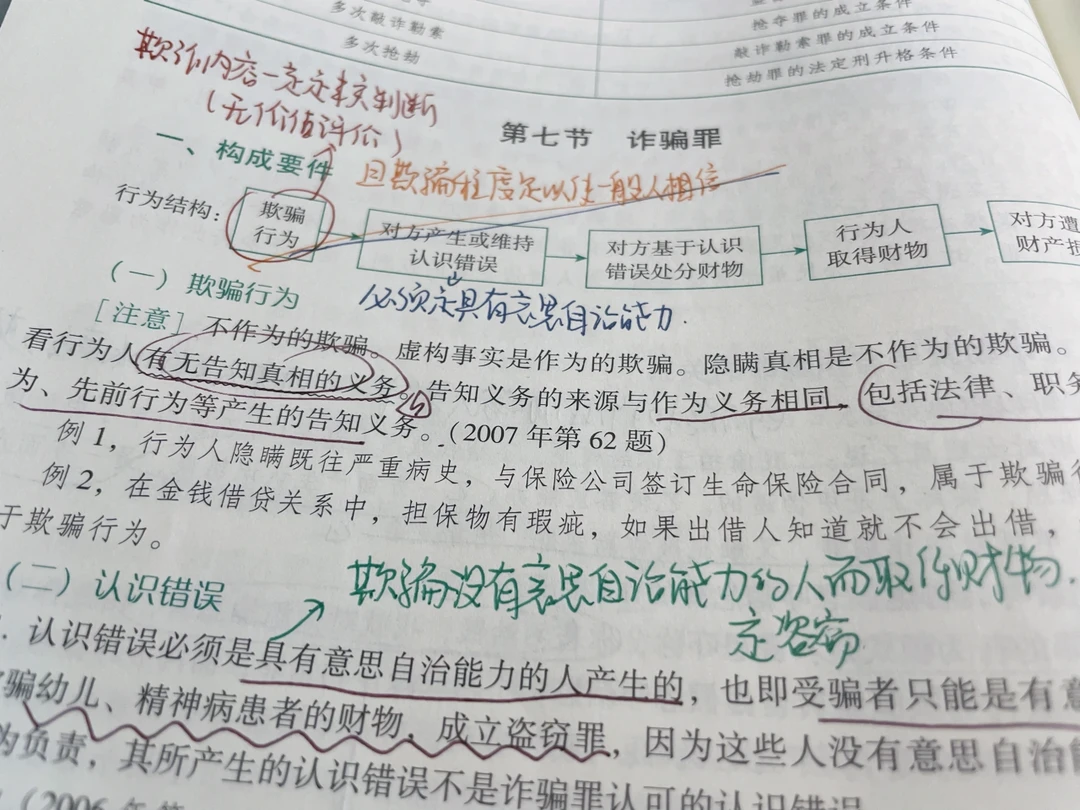 多次敲诈勒索
多次抢劫
抢夺罪的成立条件
敲诈勒索罪的成立条件
抢劫罪的法定刑升格条件
欺诈内容一定是事实判断
(无价值评价)
第七节 诈骗罪
一、构成要件
且欺骗程度足以使一般人相信
行为结构:
欺骗
行为
对方产生或维持
认识错误
对方基于认识
错误处分财物
行为人
取得财物
对方遭
财产损
必须是具有意思自治能力.
(一) 欺骗行为
[注意] 不作为的欺骗。虚构事实是作为的欺骗。隐瞒真相是不作为的欺骗。
看行为人有无告知真相的义务。告知义务的来源与作为义务相同,包括法律、职务
为、先前行为等产生的告知义务。(2007年第62题)
例1,行为人隐瞒既往严重病史,与保险公司签订生命保险合同,属于欺骗行
例2,在金钱借贷关系中,担保物有瑕疵,如果出借人知道就不会出借,
于欺骗行为。
欺骗没有意思自治能力的人而取得财物.
是盗窃
(二) 认识错误
. 认识错误必须是具有意思自治能力的人产生的,也即受骗者只能是有意
骗幼儿、精神病患者的财物,成立盗窃罪,因为这些人没有意思自治能
为负责,其所产生的认识错误不是诈骗罪认可的认识错误
(2006年第